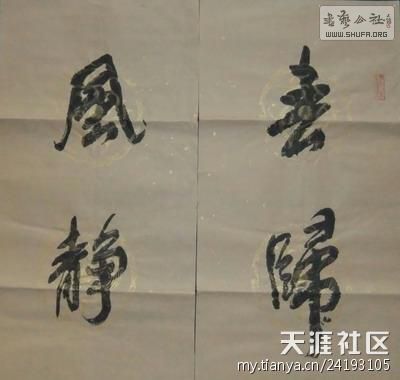 春歸
風静
書藝公社
WWW.SHUFA.ORG
天涯社区
my.tianya.cn/24193105